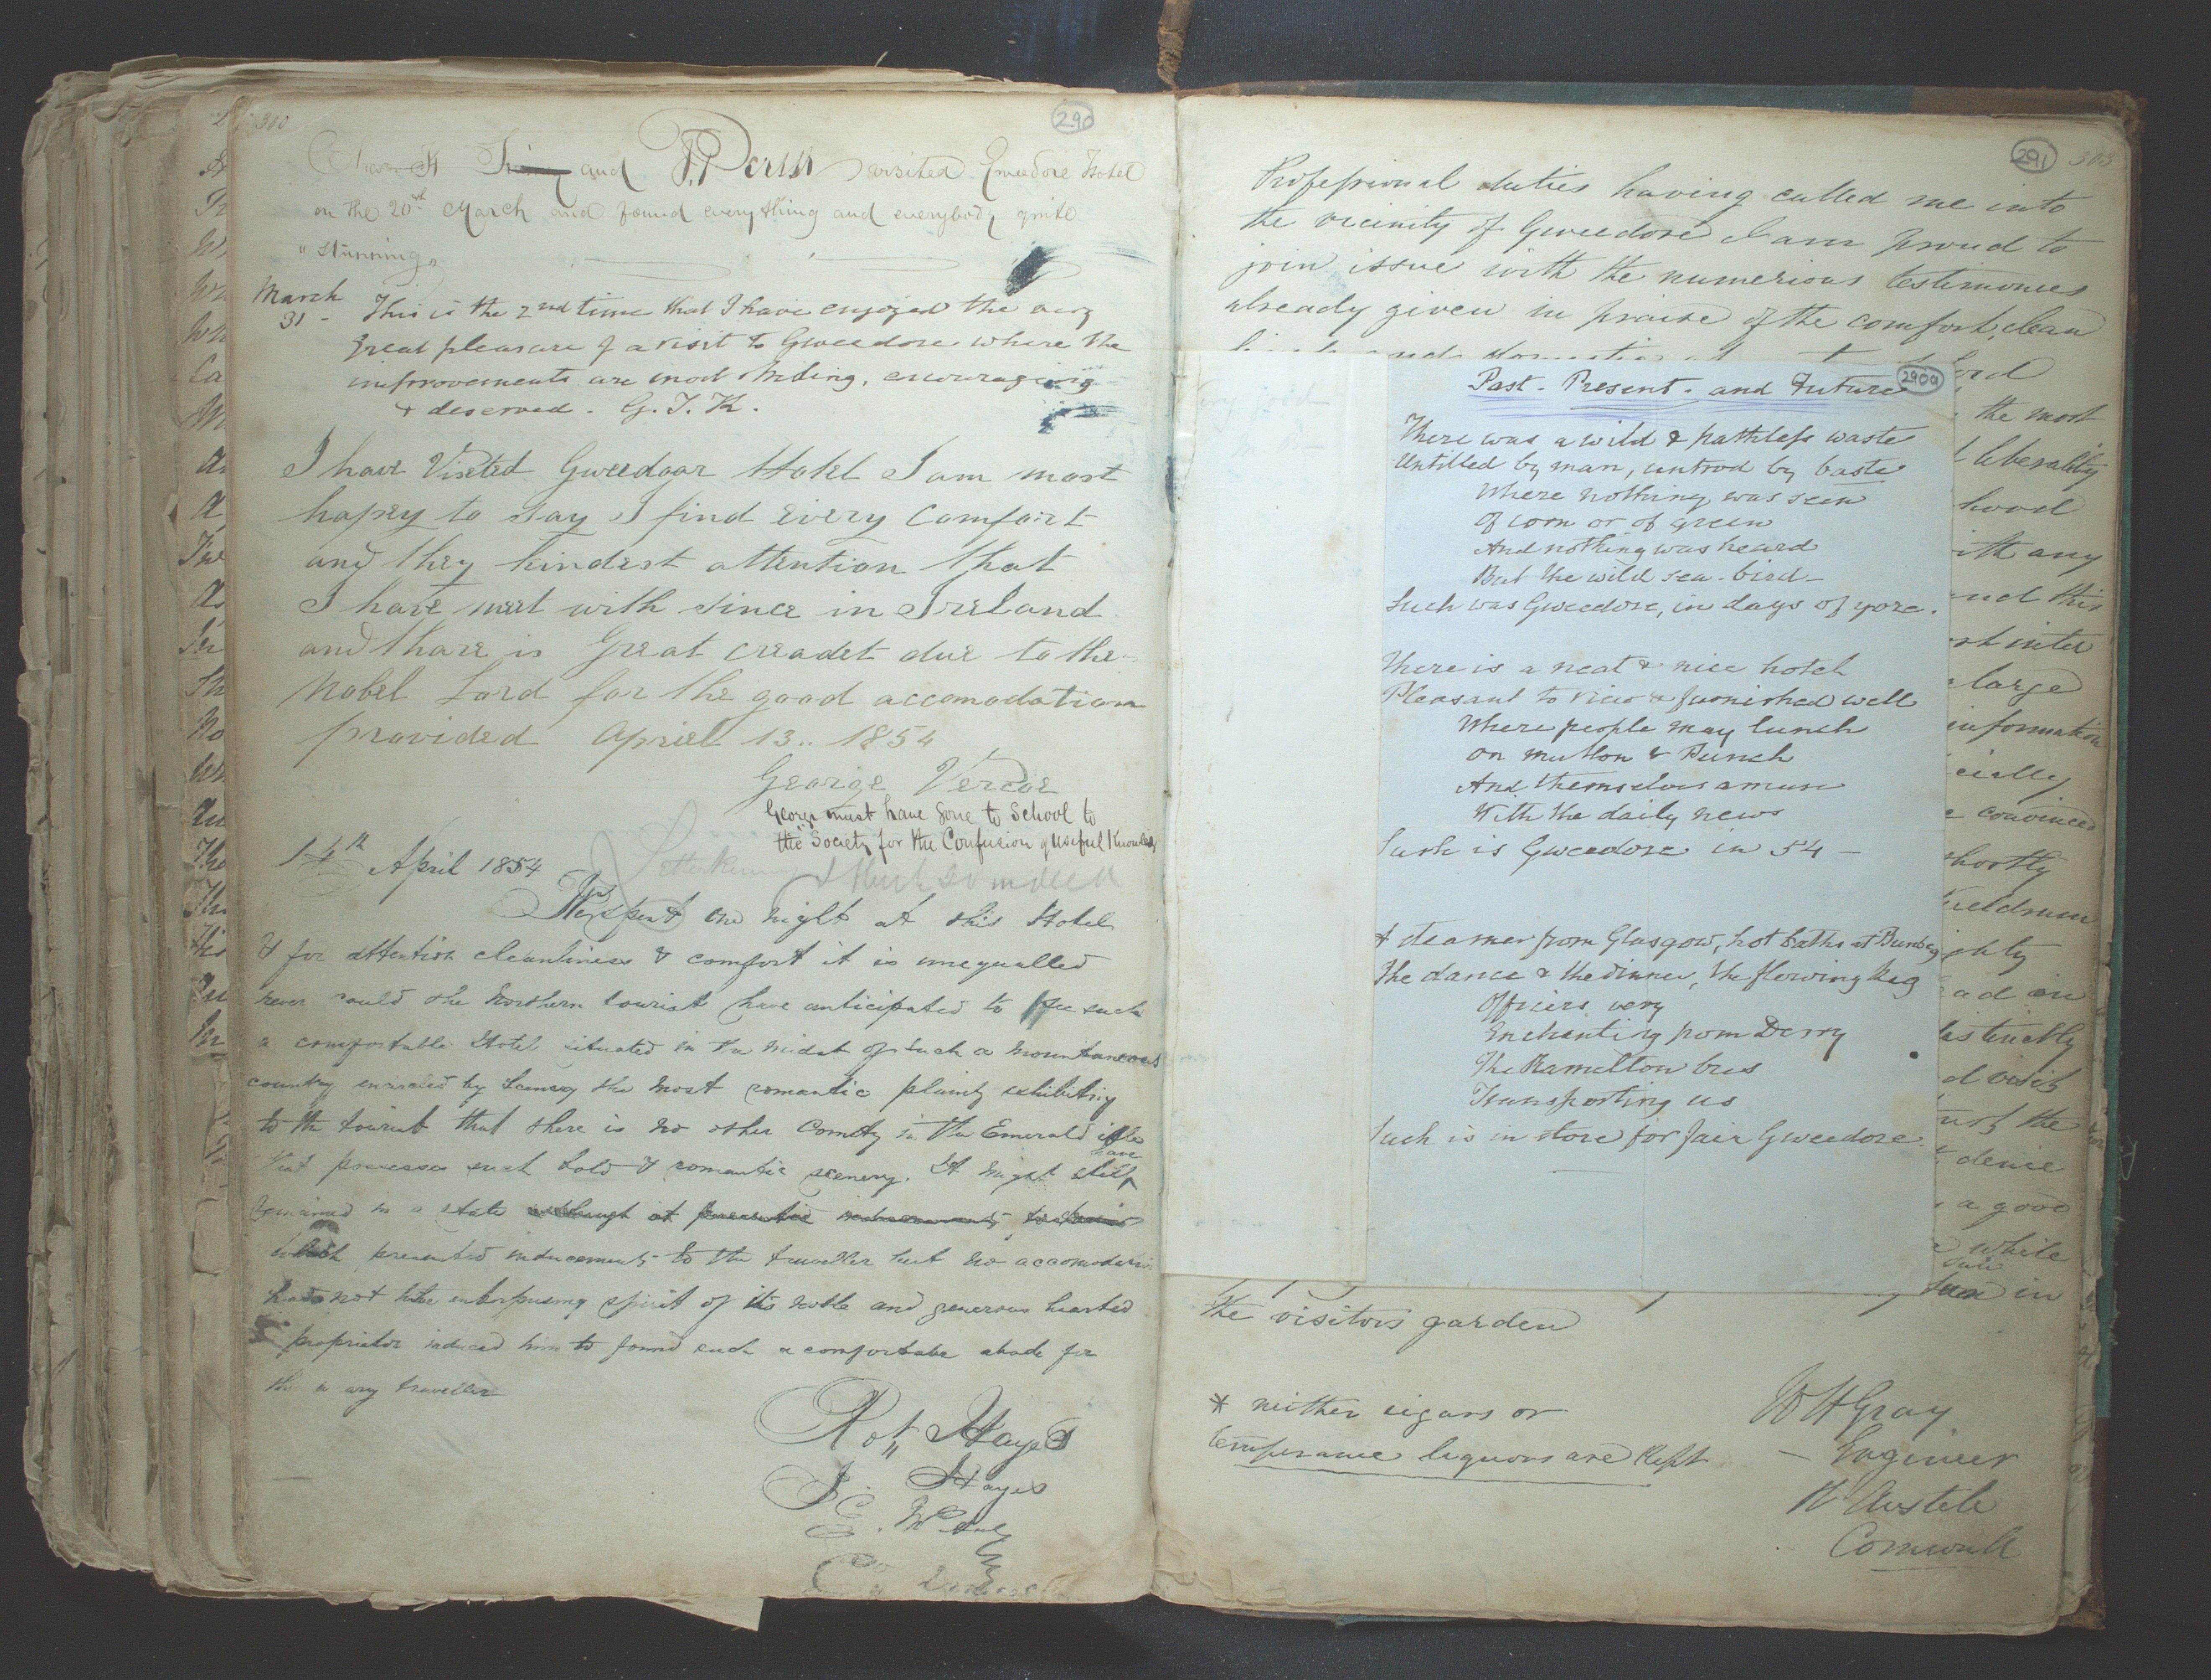 300
290
and visited Gweedore Hotel
on the 20th March and found everything and everybody quite
"stunning"
March
31 -
This is the 2nd time that I have enjoyed the very
great pleasure of a visit to Gweedore where the
improvements are most striking, encouraging
& deserved. G. J. K.
I have Viseted Gweedoar Hotel I am most
hapey to say I find every Comfort
and they kindest attention that
I have meet with since in Ireland
and thare is Great creadet due to the
Nobel Lord for the good accomodation
provided Apriel 13.. 1854
George Vercoe
George must have gone to School to
the "Society for the Confusion of Useful Knowledge
14th April 1854
Letterkenny
We spent one night at this Hotel
& for attention cleanliness & comfort it is unequalled
never could the Northern tourist have anticipated to see such
a comfortable Hotel situated in the midst of such a mountaneous
country encircled by Scenery the most romantic plainly exhibiting
to the tourist that there is no other County in the Emerald isle
that possesses such bold & romantic scenery. It might still have
remained in a state although it presented inducements to
which presented inducements to the traveller but no accomodation
had not the enterprising spirit of its noble and generous hearted
proprietor induced him to found such a comfortable abode for
the weary traveller
Rot. Hayes
J. Hayes
291
303
Professional duties having called me into
the vicinity of Gweedore I am proud to
join issue with the numerious testimonies
already given in praise of the comfort, clean
the most
liberality
hood
with any
and this
inter
large
information
cially
convinced
shortly
ad in
distinctly
d visit
the
a good
while
in
the visitors garden
* neither cigars or
temperance liquors are kept
W H Gray
- Engineer
St Austele
Cornwall
290a
Past. Present. and Future
There was a wild & pathless waste
Untilled by man, untrod by baste
Where nothing was seen
Of corn or of green
And nothing was heard
But the wild sea-bird -
Such was Gweedore, in days of yore.
There is a neat & nice hotel
Pleasant to view & furnished well
Where people may lunch
On mutton & Punch
And themselves amuse
With the daily news
Such is Gweedore in 54 -
A steamer from Glasgow, hot baths at Bunbeg
The dance & the dinner, the flowing keg
Officers very
Enchanting from Derry
The Ramelton bus
Transporting us
Such is in store for fair Gweedore.